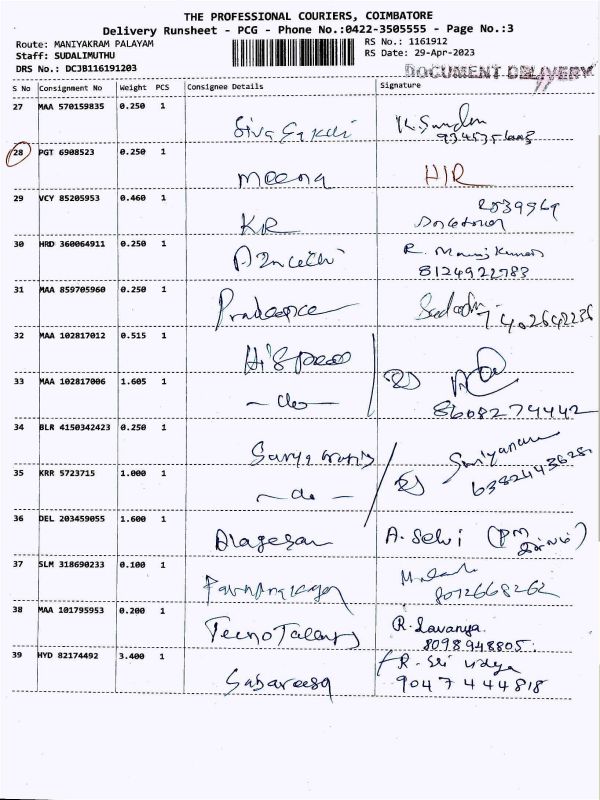 THE PROFESSIONAL COURIERS, COIMBATORE
Delivery Runsheet - PCG - Phone No.:0422-3505555 - Page No.:3
Route: MANIYAKRAM PALAYAM
RS No.: 1161912
Staff: SUDALIMUTHU
RS Date: 29-Apr-2023
DRS No.: DCJB116191203
DOCUMENT DELIVERY
S No Consignment No Weight PCS Consignee Details Signature
27 MAA 570159835 0.250 1
Siva Sakthi
28 PGT 6908523 0.250 1
Meena
29 VCY 85205953 0.460 1
KR
30 HRD 360064911 0.250 1 R. Manoj Kumar
8124922783
31 MAA 859705960 0.250 1
Pradeepce 7402642236
32 MAA 102817012 0.515 1
Hi Speed
33 MAA 102817006 1.605 1
- do - 8608274442
34 BLR 4150342423 0.250 1
35 KRR 5723715 1.000 1
- do -
36 DEL 203459055 1.600 1
Alagesan A. Selvi
37 SLM 318690233 0.100 1
8072668262
38 MAA 101795953 0.200 1
Tecno Talents R. Lavanya
8098948805
39 HYD 82174492 3.400 1
Sabareesa R. Sri Vidya
9047444818